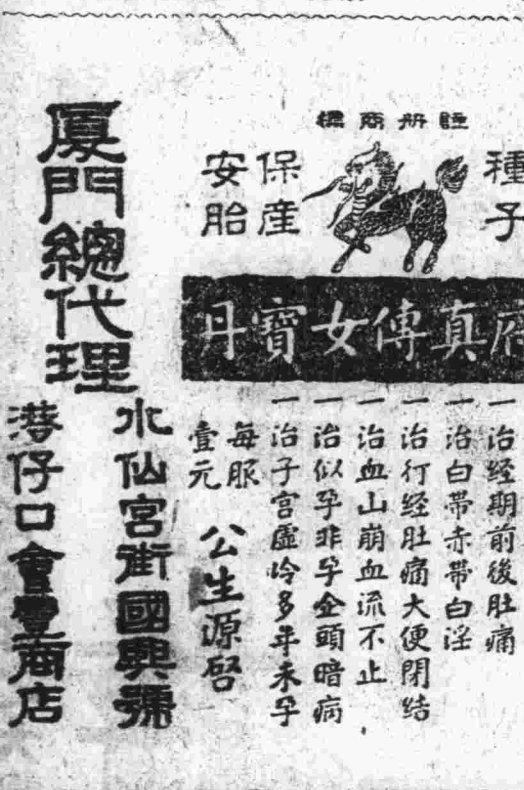 註册商標
種子
保産
安胎
府真傳女寶丹
一治经期前後肚痛
一治白帶赤帶白淫
一治行经肚痛大便閉结
一治血山崩血流不止
一治似孕非孕企頭暗病
一治子宫虛冷多年未孕
每服
壹元
公生源啓
厦門總代理
水仙宮街國興號
港仔口會豐商店